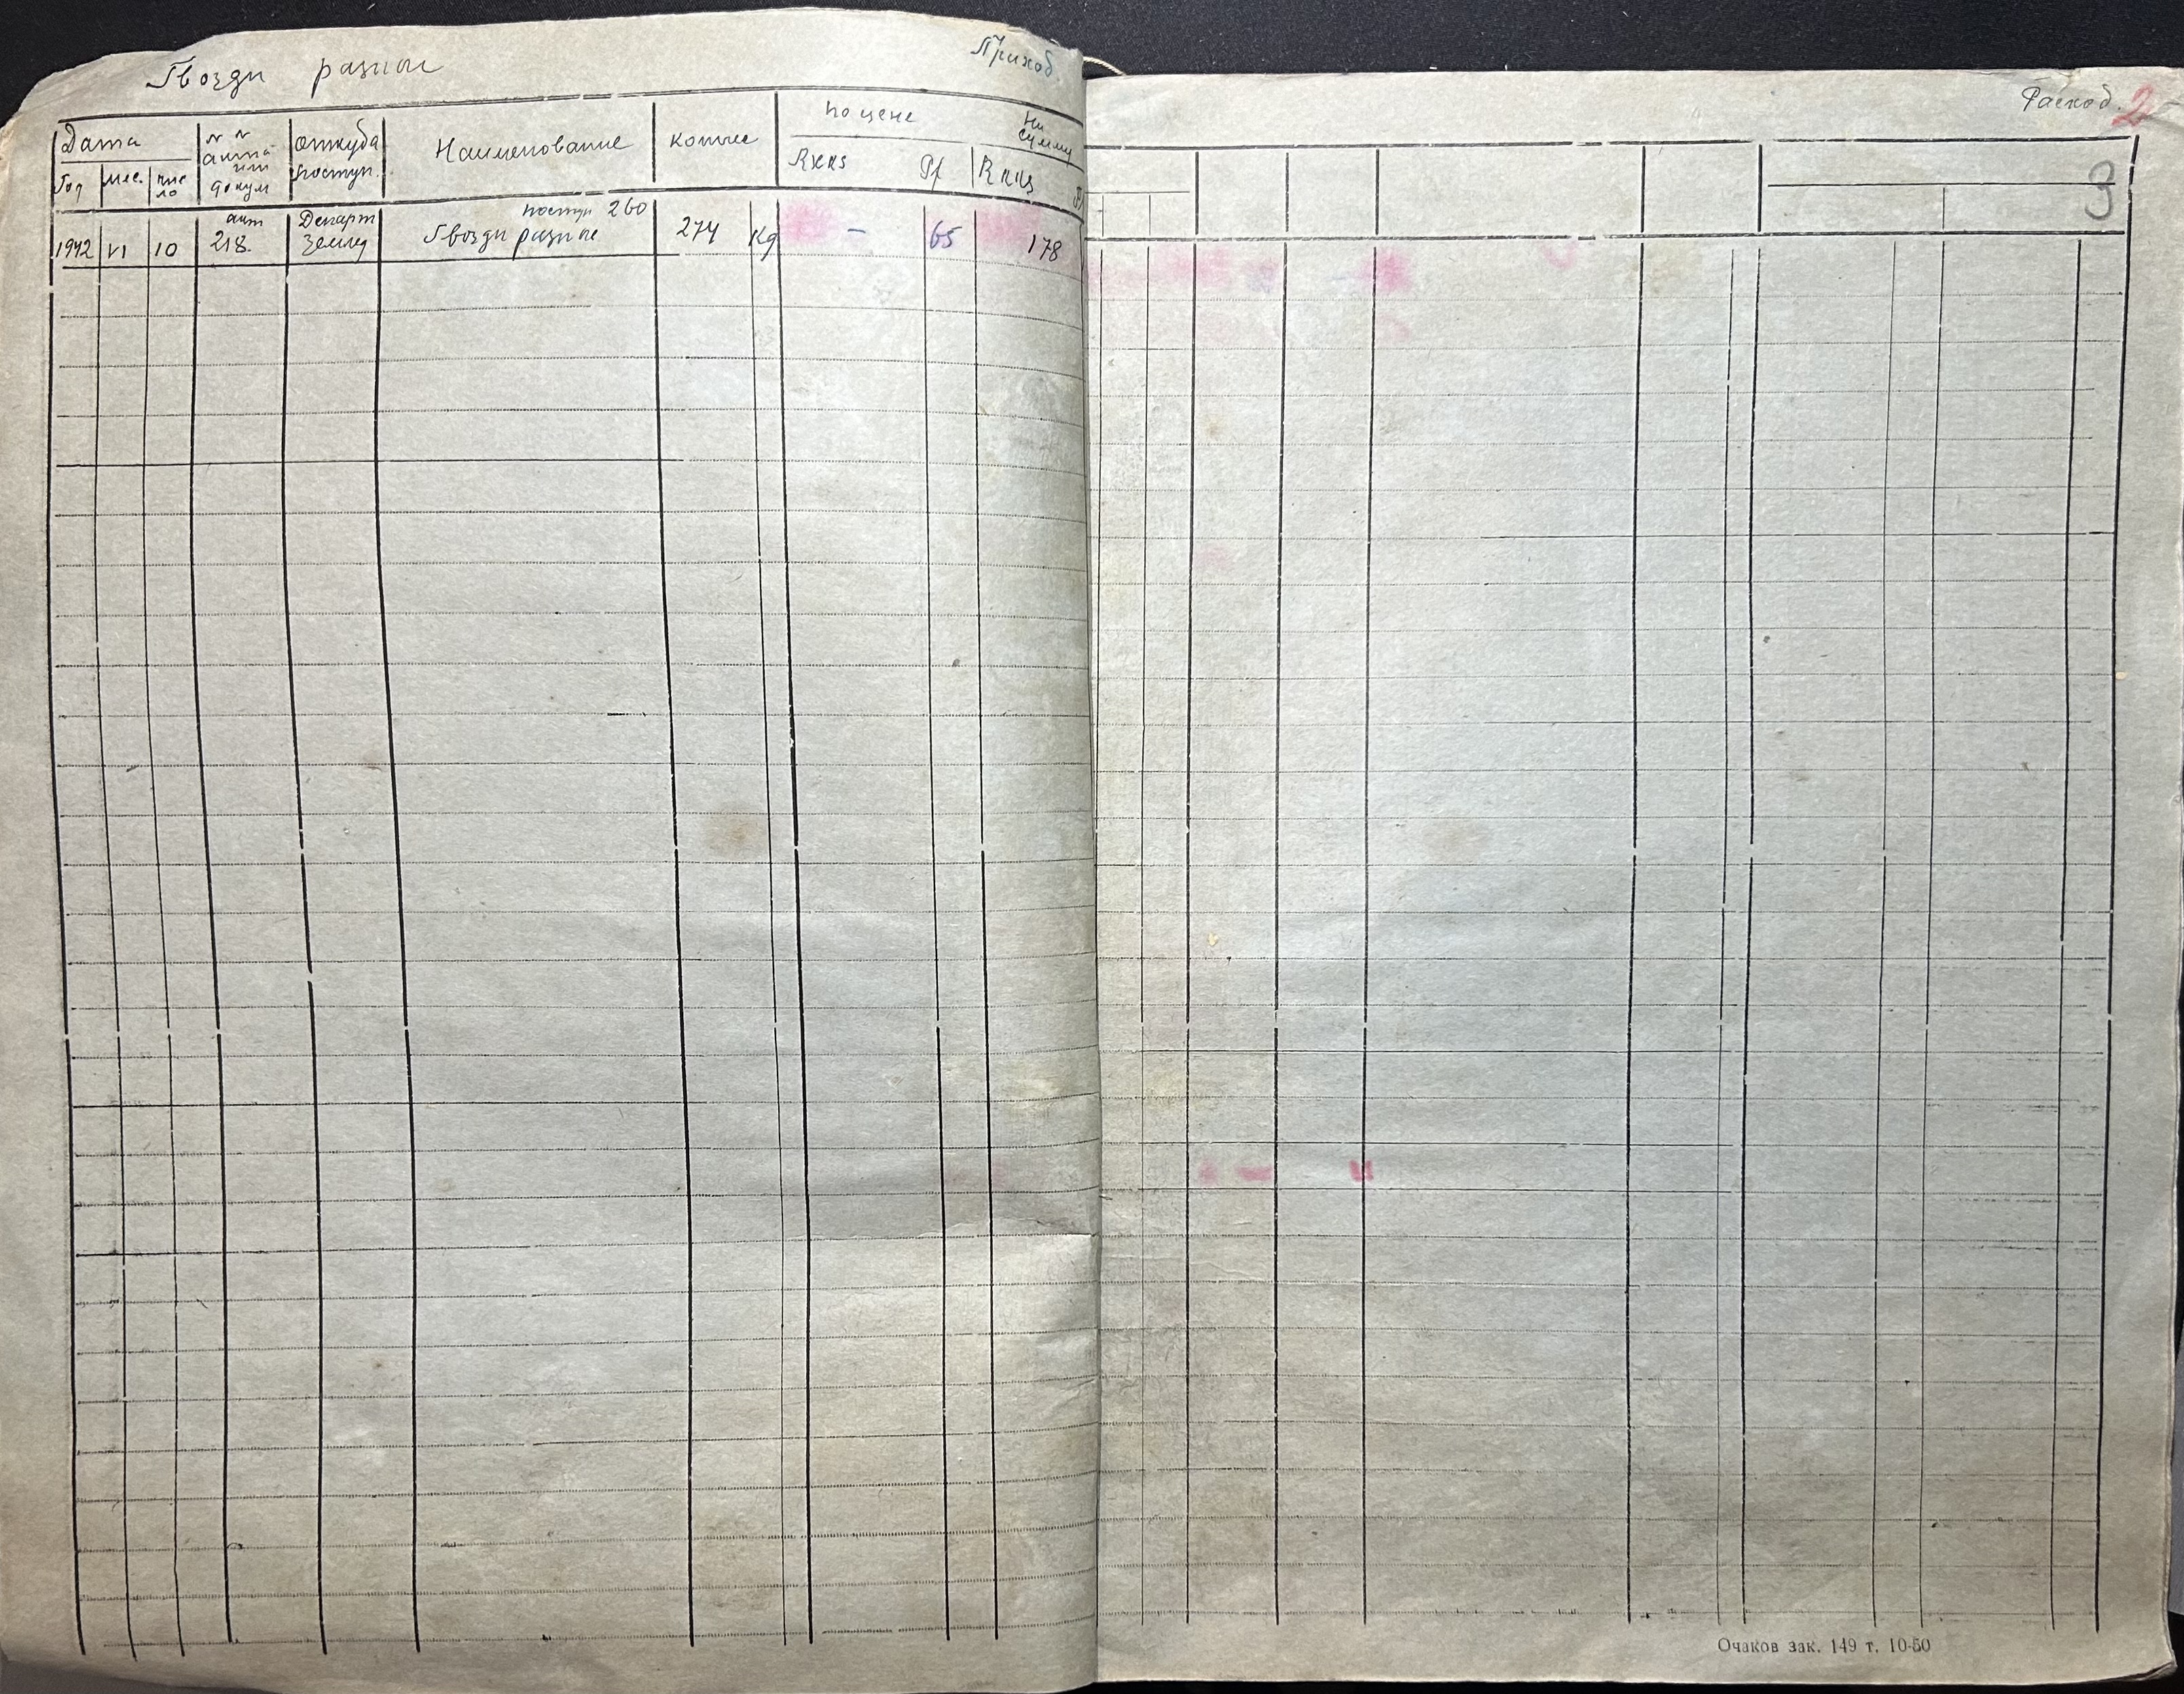 Гвозди разные
Приход.
Дата
Год
мес.
чис
ло
№ №
акта
или
докум
откуда
поступ.
Наименование
колич
по цене
Rккs
Pf
На
сумму
Rккs
1942 VI 10
акт
218.
Департ
Землед
поступ 260
Гвозди разные
274 Kg
– 65
178
Расход. 2
3
Очаков зак. 149 т. 10-50